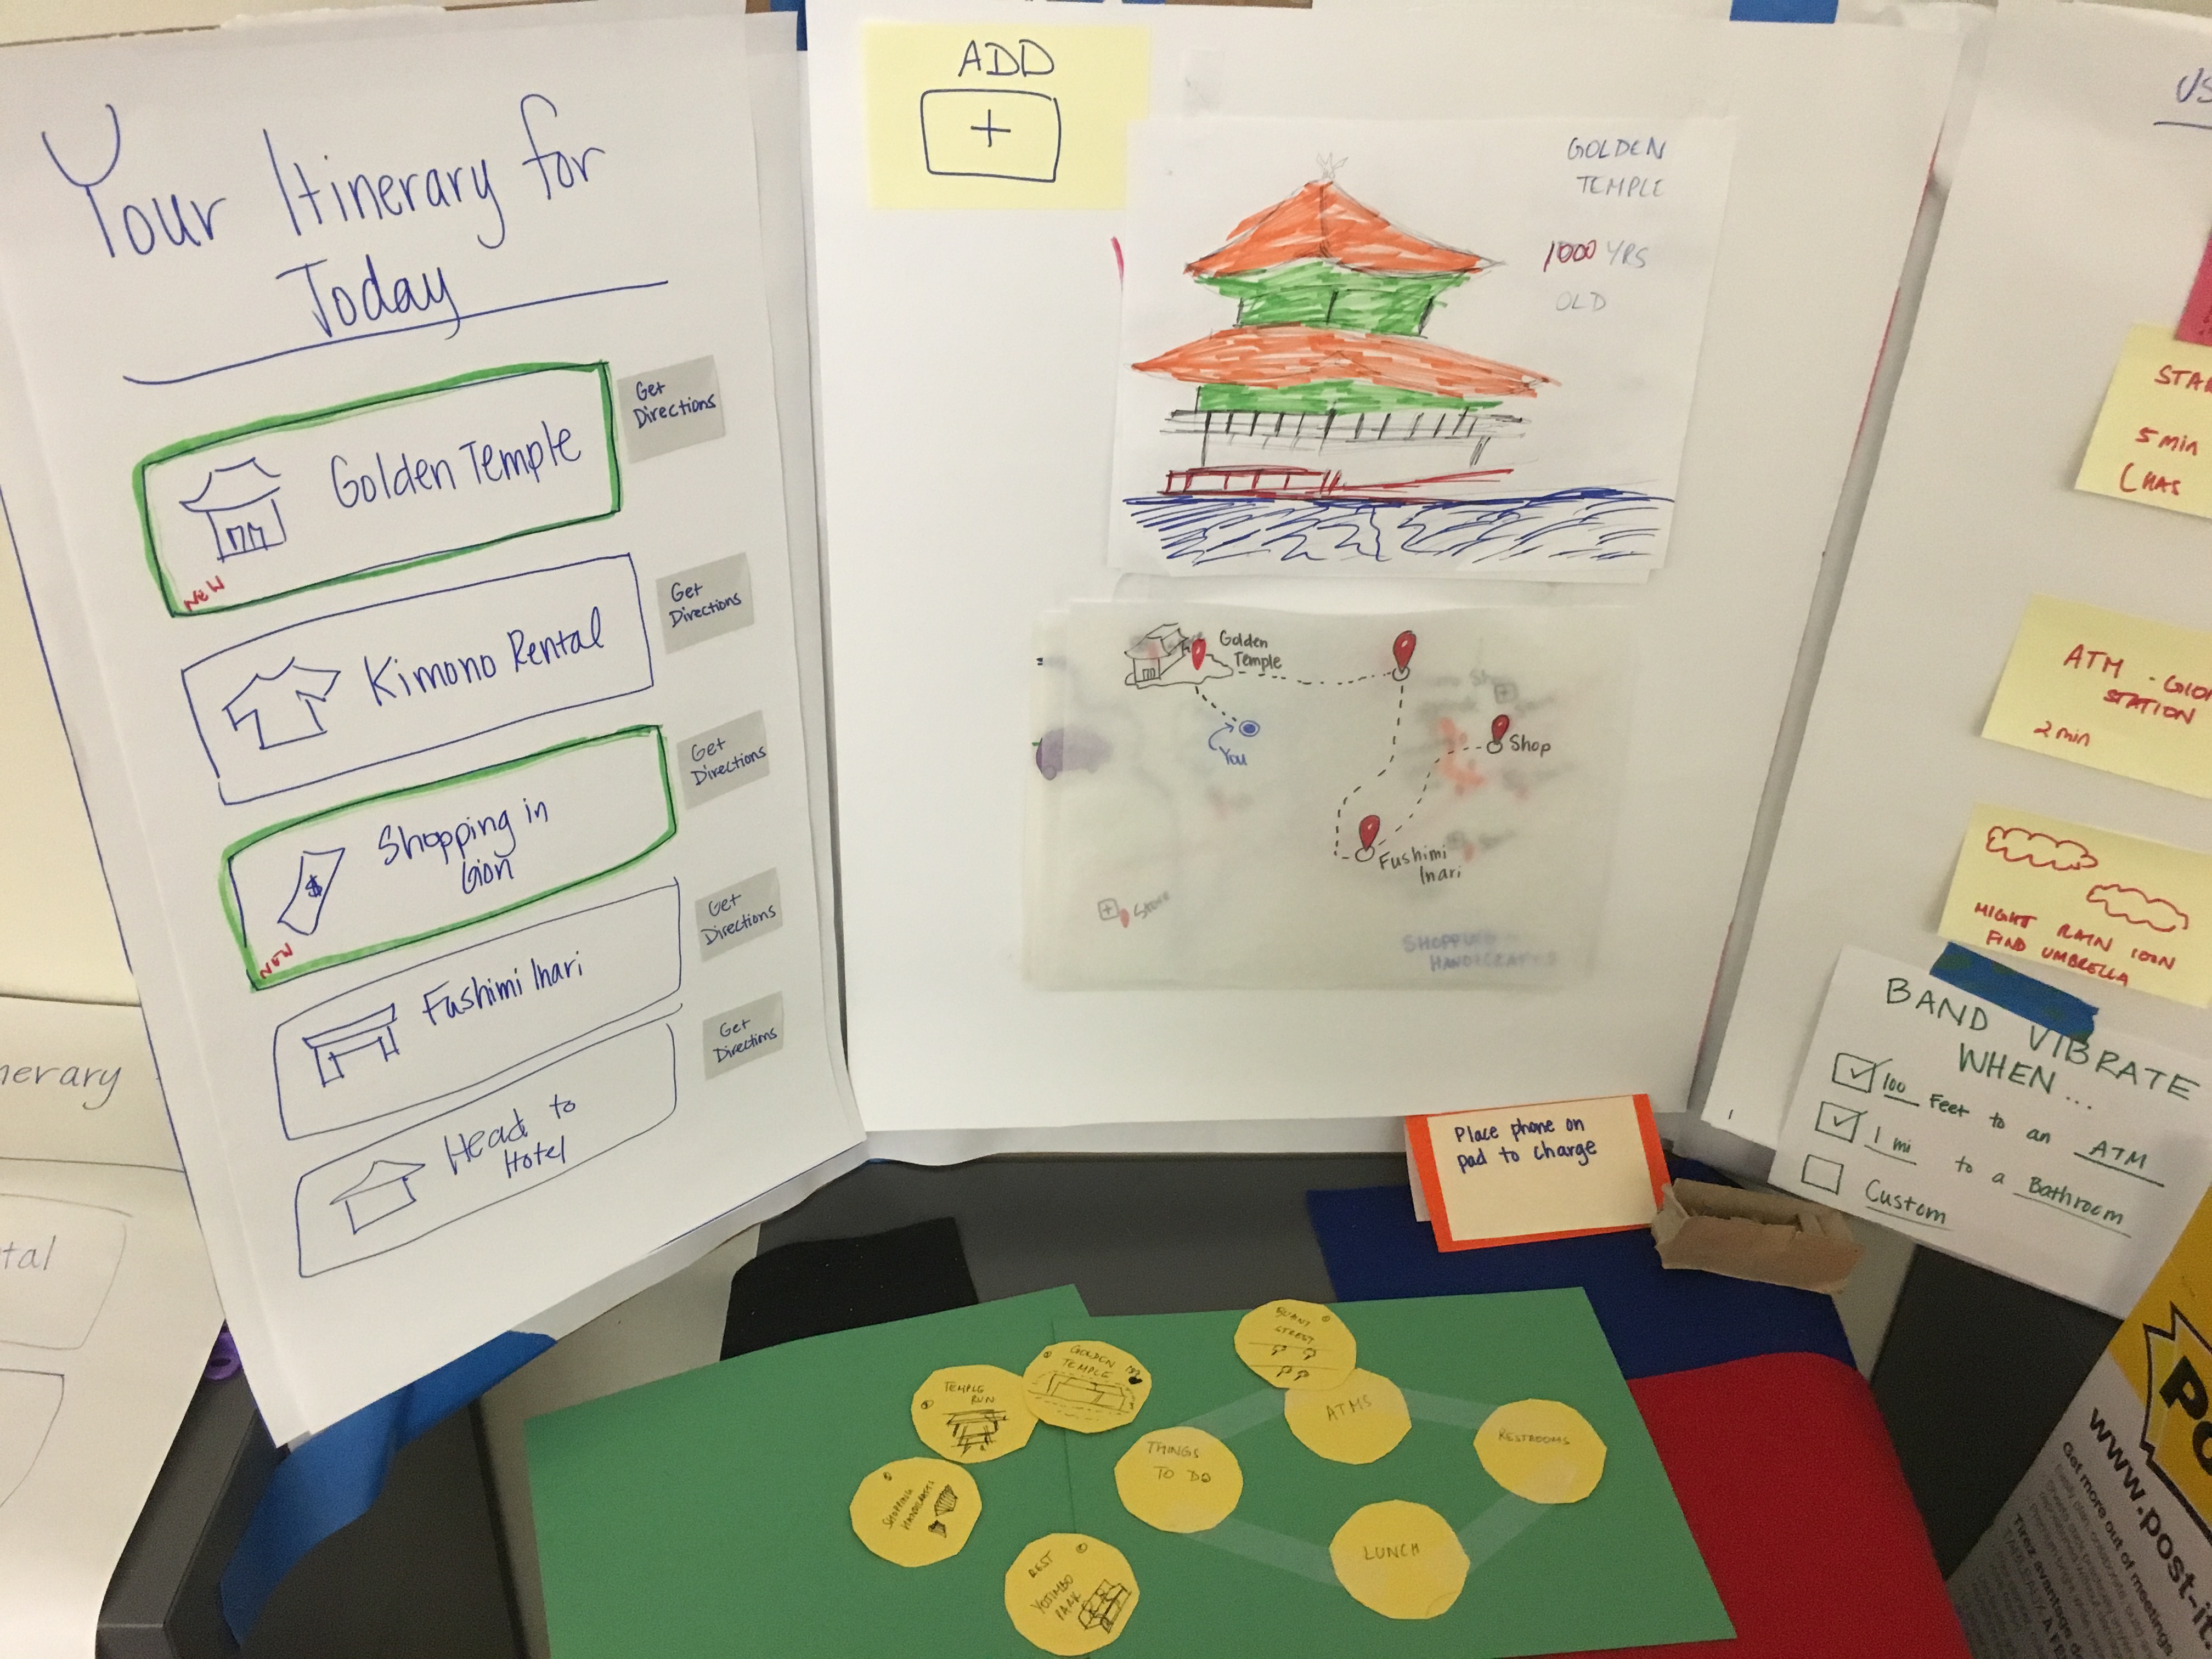 Your Itinerary for
Today
Golden Temple
NEW
Get
Directions
Kimono Rental
Get
Directions
Shopping in
Gion
$
NEW
Get
Directions
Fushimi Inari
Get
Directions
Head to
Hotel
Get
Directions
nerary
tal
ADD
+
GOLDEN
TEMPLE
1000 YRS
OLD
Golden
Temple
You
Shop
Fushimi
Inari
Store
SHOPPING
HANDICRAFTS
US
STAR
5 min
(HAS
ATM - GION
STATION
2 min
MIGHT RAIN
FIND UMBRELLA
BAND VIBRATE
WHEN...
100 Feet to an ATM
1 mi to a Bathroom
Custom
Place phone on
pad to charge
GOLDEN
TEMPLE
TEMPLE
RUN
SHOPPING
HANDICRAFTS
REST
PARK
THINGS
TO DO
STREET
ATMS
RESTROOMS
LUNCH
PO
www.post-it.
Get more out of meetings
Tirez avantage d